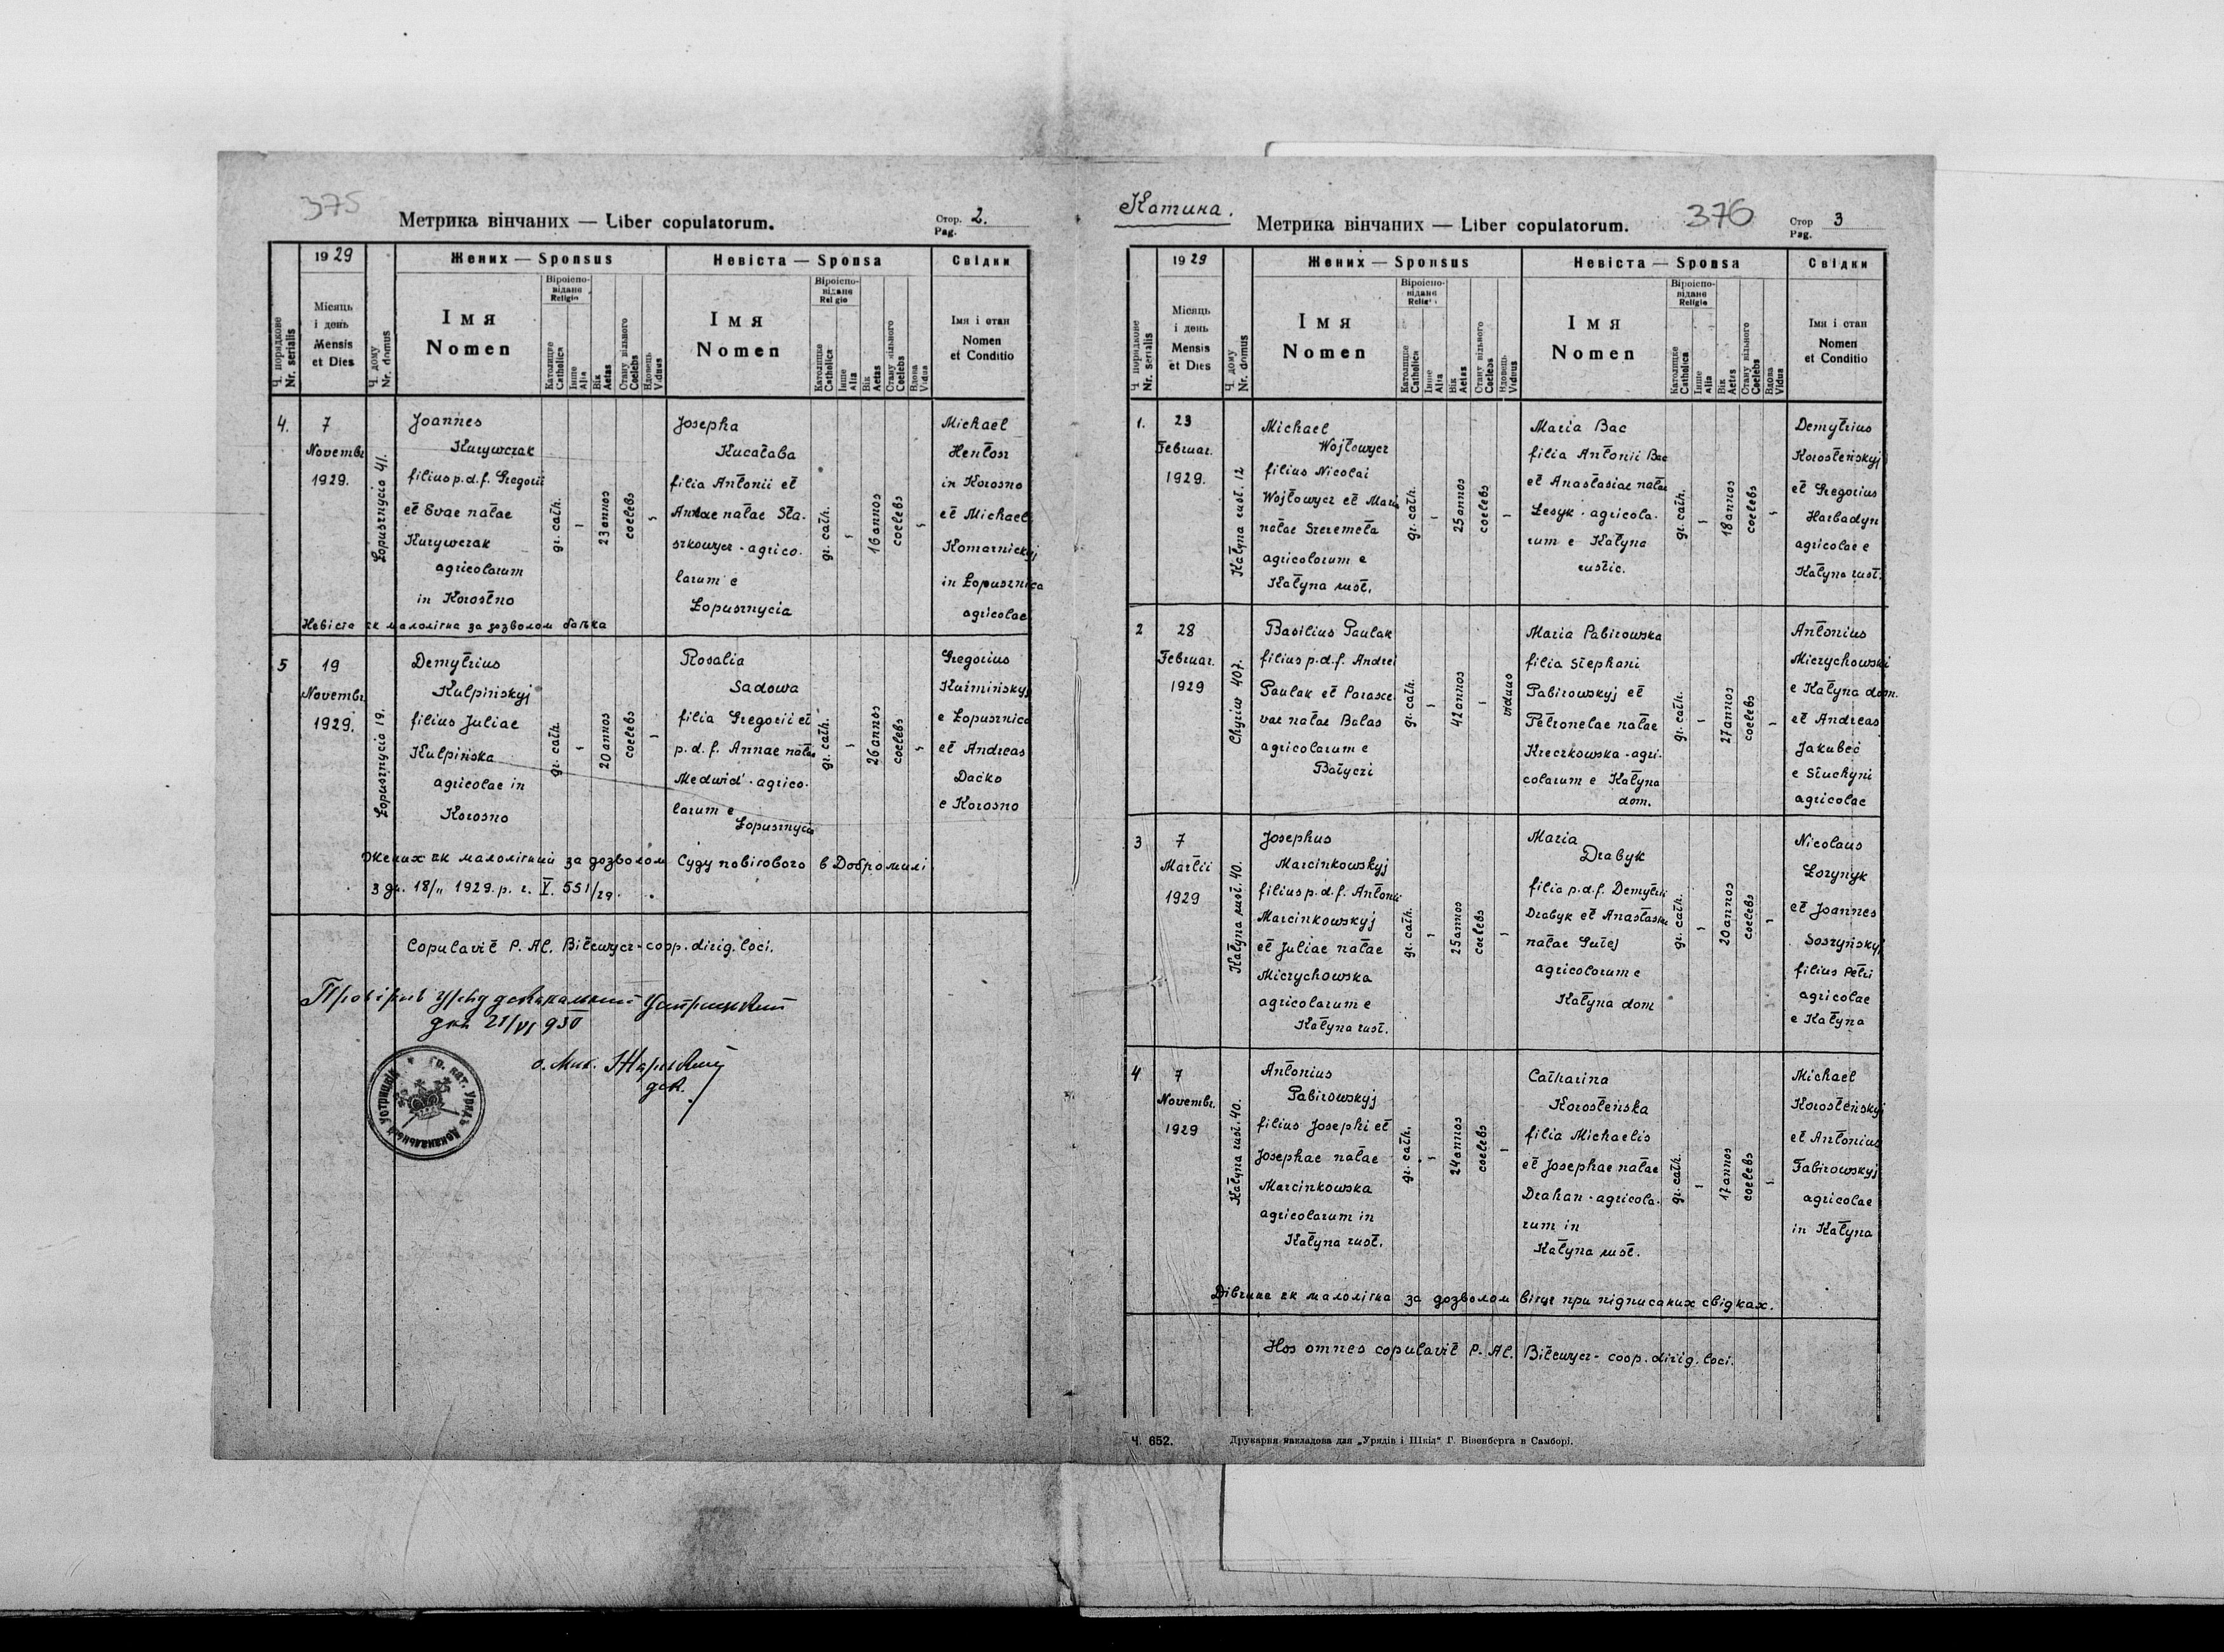 375
Метрика вінчаних — Liber copulatorum.
Стор. Pag. 2.
1929
Жених — Sponsus
Невіста — Sponsa
Свідки
Ч. порядкове Nr. serialis
Місяць і день Mensis et Dies
Ч. дому Nr. domus
Імя Nomen
Віроіспо-відане Religio
Католицке Catholica
Інше Alia
Вік Aetas
Стану вільного Coelebs
Вдовець Viduus
Імя Nomen
Віроіспо-відане Religio
Католицке Catholica
Інше Alia
Вік Aetas
Стану вільного Coelebs
Вдова Vidua
Імя і стан Nomen et Conditio
4.
7
Novembr
1929.
Łopusznycia 41.
Joannes
Kurywczak
filius p.d.f. Gregorii
et Evae natae
Kurywczak
agricolarum
in Korostno
gr. cath.
23 annos
coelebs
Josepha
Kucałaba
filia Antonii et
Annae natae Sta-
szkowycz - agrico-
larum e
Łopusznycia
gr. cath.
16 annos
coelebs
Michael
Henłosz
in Korosno
et Michael
Komarnickyj
in Łopusznica
agricolae
Невіста як малолітна за дозволом батька
5
19
Novembr
1929.
Łopusznycia 19.
Demytrius
Kulpińskyj
filius Juliae
Kulpińska
agricolae in
Korosno
gr. cath.
20 annos
coelebs
Rosalia
Sadowa
filia Gregorii et
p.d.f. Annae natae
Medwid' - agrico-
larum e
Łopusznycia
gr. cath.
26 annos
coelebs
Gregorius
Kuźmińskyj
e Łopusznica
et Andreas
Daćko
e Korosno
Жених як малолітний за дозволом Суду повітового в Добромилі
з дн. 18/11 1929. р. ч. V. 551/29.
Copulavit P. Al. Bilewycz - coop. dirig. loci.
Провірив Уряд деканальний Устрицький
дня 21/VI 930
о. Мик.
дек.
гр. кат. Урядъ Деканальный Устрицкій
Катина.
Метрика вінчаних — Liber copulatorum.
376
Стор Pag. 3
1929
Жених — Sponsus
Невіста — Sponsa
Свідки
Ч. порядкове Nr. serialis
Місяць і день Mensis et Dies
Ч. дому Nr. domus
Імя Nomen
Віроіспо-відане
Католицке Catholica
Інше Alia
Вік Aetas
Стану вільного Coelebs
Вдовець Viduus
Імя Nomen
Віроіспо-відане Religio
Католицке Catholica
Інше Alia
Вік Aetas
Стану вільного Coelebs
Вдова Vidus
Імя і стан Nomen et Conditio
1.
23
Februar.
1929.
Katyna rust. 12
Michael
Wojtowycz
filius Nicolai
Wojtowycz et Maria
natae Szeremeta
agricolarum e
Katyna rust.
gr. cath.
25 annos
coelebs
Maria Bac
filia Antonii Bac
et Anastasiae natae
Łesyk - agricola-
rum e Katyna
rustic.
gr. cath.
18 annos
coelebs
Demytrius
Korosteńskyj
et Gregorius
Harbadyn
agricolae e
Katyna rust.
2
28
Februar.
1929
Chyriw 407.
Basilius Paulak
filius p.d.f. Andrei
Paulak et Parasce-
vae natae Balas
agricolarum e
Batyczi
gr. cath.
42 annos
viduus
Maria Pabirowska
filia Stephani
Pabirowskyj et
Petronelae natae
Kreczkowska - agri-
colarum e Katyna
dom.
gr. cath.
27 annos
coelebs
Antonius
Miczychowski
e Katyna dom.
et Andreas
Jakubeć
e Sluchyni
agricolae
3
7
Martii
1929
Katyna rust. 40.
Josephus
Marcinkowskyj
filius p.d.f. Antonii
Marcinkowskyj
et Juliae natae
Miczychowska
agricolarum e
Katyna rust.
gr. cath.
25 annos
coelebs
Maria
Drabyk
filia p.d.f. Demytrii
Drabyk et Anastasiae
natae Gułej
agricolarum e
Katyna dom
gr. cath.
20 annos
coelebs
Nicolaus
Łozynyk
et Joannes
Soszyńskyj
filius Petri
agricolae
e Katyna
4
7
Novembr.
1929
Katyna rust. 40.
Antonius
Pabirowskyj
filius Josephi et
Josephae natae
Marcinkowska
agricolarum in
Katyna rust.
gr. cath.
24 annos
coelebs
Catharina
Korosteńska
filia Michaelis
et Josephae natae
Drahan - agricola-
rum in
Katyna rust.
gr. cath.
17 annos
coelebs
Michael
Korosteńskyj
et Antonius
Fabirowskyj
agricolae
in Katyna
Дівчина як малолітна за дозволом вітця при підписаних свідках.
Hos omnes copulavit P. Al. Bilewycz - coop. dirig. loci.
Ч. 652.
Друкарня накладова для „Урядів і Шкіл" Г. Візенберґа в Самборі.